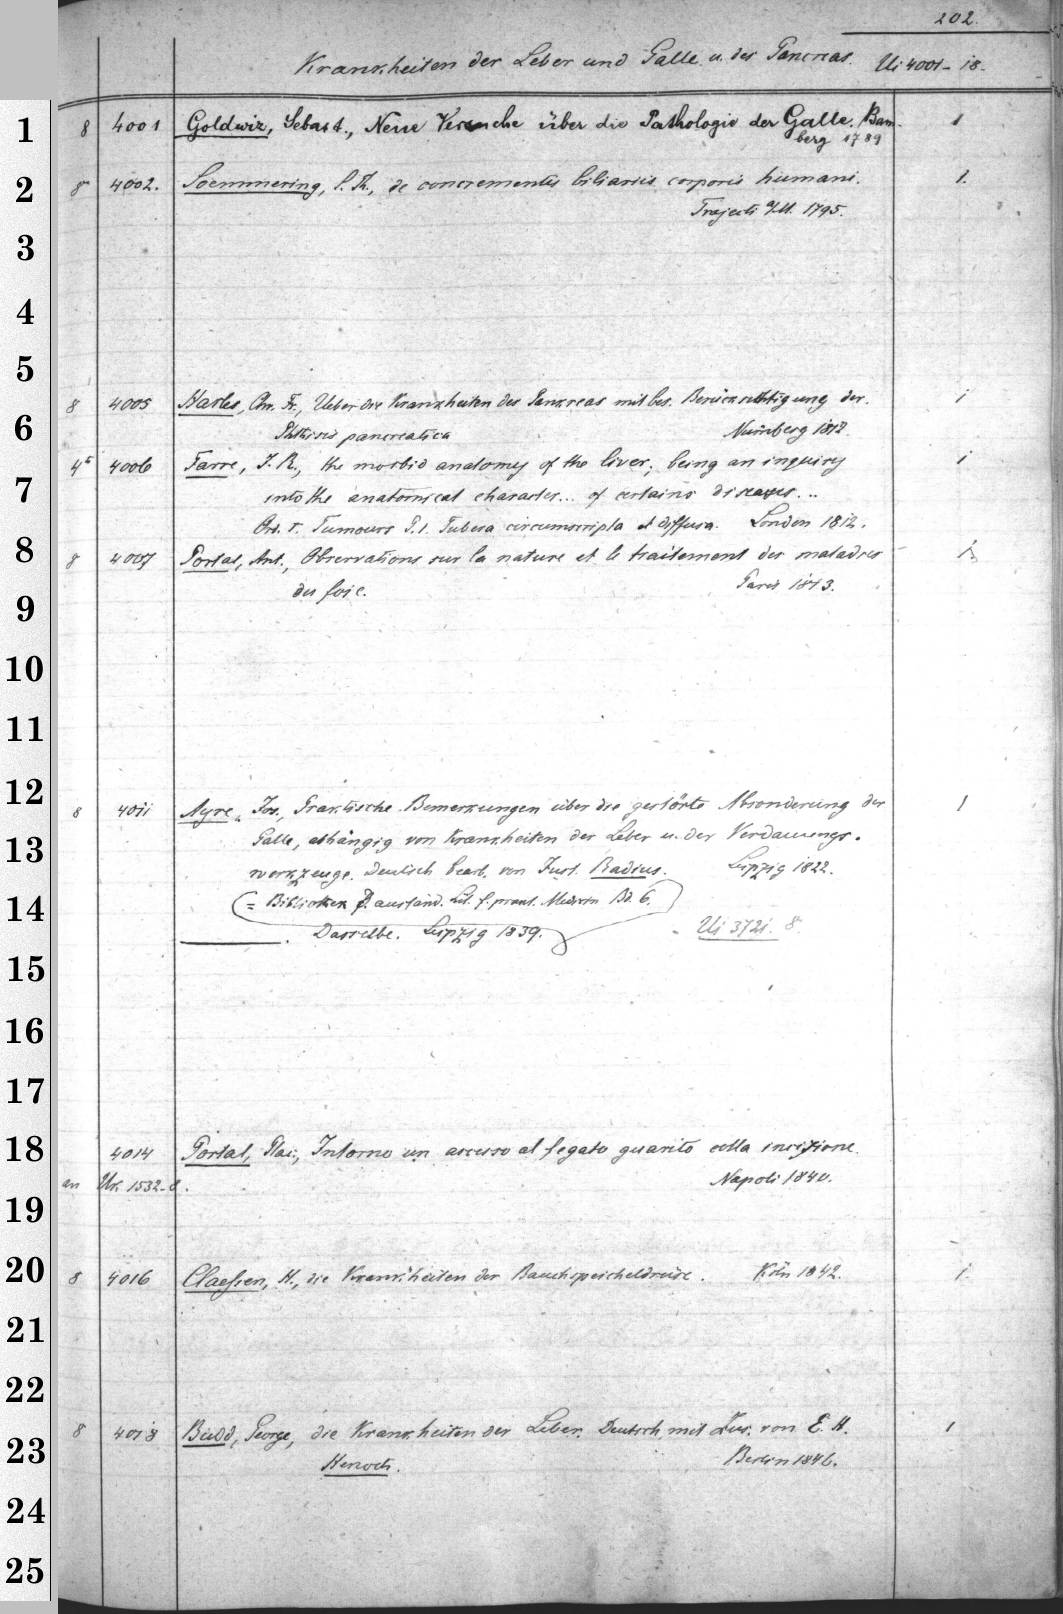 202.
Krankheiten der Leber und Galle u. des Pancreas. Ui 4001-18.
1 8 4001 Goldwiz, Sebast., Neue Versuche über die Pathologie der Galle. Bam- 1
berg 1789
2 8° 4002. Soemmering, S. Th., de concrementis biliariis corporis humani. 1.
Trajecti a/M. 1795.
3
4
5
8 4005 Harles, Chr. Fr., Ueber die Krankheiten des Pankreas mit bes. Berücksichtigung der 1
6 Phthisis pancreatica Nürnberg 1812.
4° 4006 Farre, J. R., the morbid anatomy of the liver; being an inquiry 1
7 into the anatomical character... of certains diseases...
Ord. I. Tumours P. 1. Tubera circumscripta et diffusa. London 1812.
8 8 4007 Portal, Ant., Observations sur la nature et le traitement des maladies 1
9 du foie. Paris 1813.
10
11
12 8 4011 Ayre, Jos., Praktische Bemerkungen über die gestörte Absonderung der 1
13 Galle, abhängig von Krankheiten der Leber u. der Verdauungs-
werkzeuge. Deutsch bearb. von Just. Radius. Leipzig 1822.
14 (= Bibliothek d. ausländ. Lit. f. prakt. Medicin Bd. 6.)
. Dasselbe. Leipzig 1839. - Ui 3721. 8.
15
16
17
18 4014 Portal, Plac., Intorno un ascesso al fegato guarito colla incisione.
an Ur. 1532-8. Napoli 1840.
19
20 8 4016 Claeßen, H., die Krankheiten der Bauchspeicheldrüse. Köln 1842. 1.
21
22
8 4018 Budd, George, die Krankheiten der Leber. Deutsch mit Zus. von E. H. 1
23 Henoch. Berlin 1846.
24
25